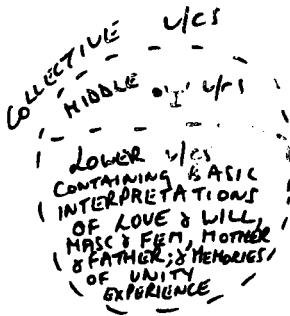 COLLECTIVE U/CS
MIDDLE I U/CS
LOWER U/CS
CONTAINING BASIC
INTERPRETATIONS
OF LOVE & WILL,
MASC & FEM, MOTHER
& FATHER; & MEMORIES
OF UNITY
EXPERIENCE